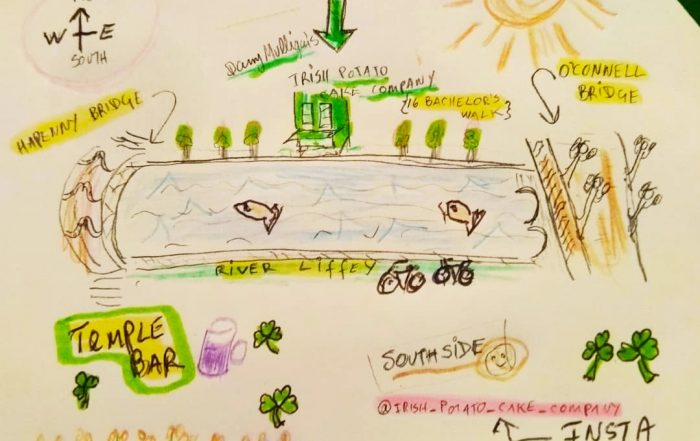 W E
SOUTH
Danny Mulligan's
IRISH POTATO
CAKE COMPANY
{16 BACHELOR'S
WALK}
O'CONNELL
BRIDGE
HAPENNY BRIDGE
RIVER LIFFEY
TEMPLE
BAR
SOUTHSIDE
@IRISH_POTATO_CAKE_COMPANY
INSTA